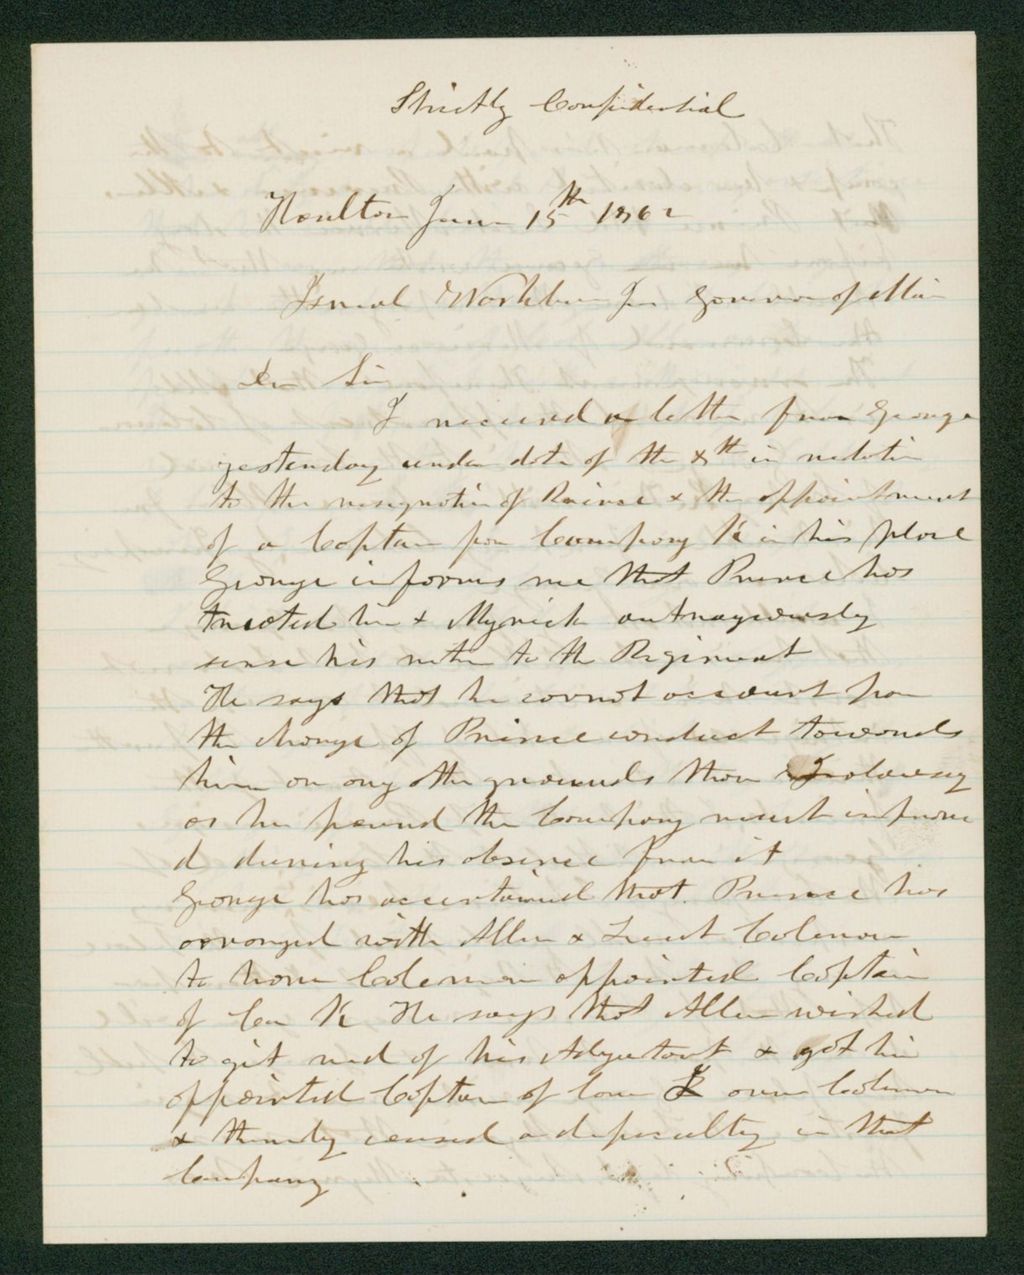 Strictly Confidential
Houlton June 15th 1862
Israel Washburn Jur Governor of Main
Dr Sir
I received a letter from George
yesterday under date of the 8th in relation
to the resignation of Prince & the appointment
of a Captain for Company K in his place
George informs me that Prince has
treated him & Myrick outrageously
sense his return to the Regiment
He says that he connot account for
the change of Prince conduct towards
him on any other grounds than Jealousy
as he found the Company much improve
d during his absence from it
George has ascertained that Prince has
arranged with Allen & Lieut Coleman
to have Coleman appointed Captain
of Co K He says that Allen wished
to git rid of his Adjutant & got him
appointed Captain of Com over Coleman
& thereby caused a difficulty in that
Company